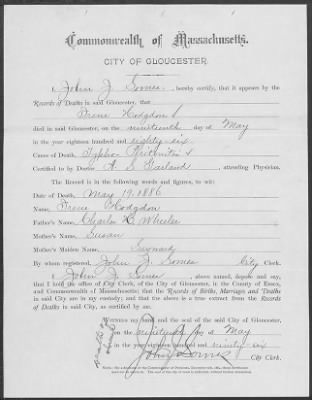 Commonwealth of Massachusetts.
CITY OF GLOUCESTER.
I, John J. Somes, hereby certify, that it appears by the
Records of Deaths in said Gloucester, that
Irene Hodgdon
died in said Gloucester, on the nineteenth day of May
in the year eighteen hundred and eighty-six
Cause of Death, Typhoo
Certified to by Doctor A. S. Garland, attending Physician.
The Record is in the following words and figures, to wit:
Date of Death, May 19, 1886
Name, Irene Hodgdon
Father's Name, Charles H. Wheeler
Mother's Name, Susan
Mother's Maiden Name,
By whom registered, John J. Somes City Clerk.
I, John J. Somes, above named, depose and say,
that I hold the office of City Clerk, of the City of Gloucester, in the County of Essex,
and Commonwealth of Massachusetts; that the Records of Birth, Marriages and Deaths
in said City are in my custody; and that the above is a true extract from the Records
of Deaths in said City, as certified by me.
WITNESS my hand and the seal of the said City of Gloucester,
on the day of May
in the year eighteen hundred and ninety-six
John J. Somes City Clerk.